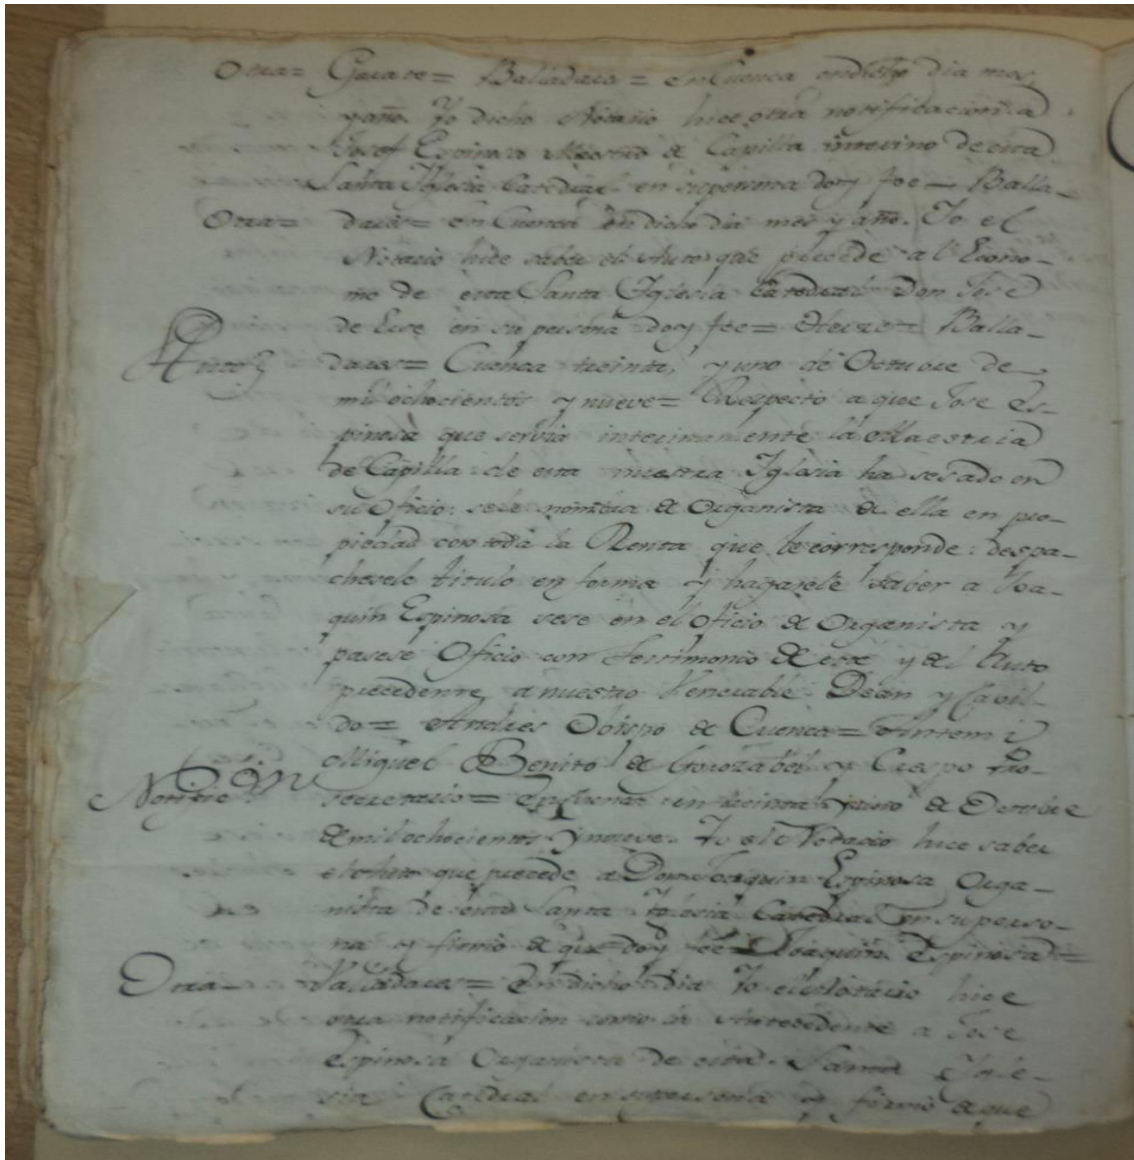 Otra= Garate= Balladares= en Cuenca en dicho dia mes
y año. Yo dicho Notario hice otra notificacion a
Josef Espinosa Maestro de Capilla interino de esta
Santa Yglesia Catedral en su persona doy fee= Balla-
Otra= dares= en Cuenca en dicho dia mes y año. Yo el
Notario hice saber el Auto que precede al Econo-
mo de esta Santa Yglesia Catedral Don Jose
de en su persona doy fee= Balla-
Auto dares= Cuenca treinta, y uno de Octubre de
mil ochocientos y nueve= Respecto a que Jose Es-
pinosa que servia interinamente la Maestria
de Capilla de esta nuestra Yglesia ha sesado en
su Oficio: se le nombra de Organista de ella en pro-
piedad con toda la Renta que le corresponde: despa-
chesele titulo en forma y hagasele saber a Joa-
quin Espinosa sese en el Oficio de Organista y
pasese Oficio con Testimonio de este y del Auto
precedente, a nuestro Venerable Dean y Cavil-
do= Andres Obispo de Cuenca= Antemi
Miguel Benito de y Crespo Pro-
Notific.on secretario= En Cuenca en treinta y uno de Octubre
de mil ochocientos y nueve. Yo el Notario hice saber
el Auto que precede a Don Joaquin Espinosa Orga-
nista de esta Santa Yglesia Catedral en su perso-
na y firmó de que doy fee= Joaquin Espinosa=
Otra= Valladares= En dicho dia Yo el Notario hice
otra notificacion como la Antecedente a Jose
Espinosa Organista de esta Santa Ygle-
sia Catedral en su persona y firmó de que